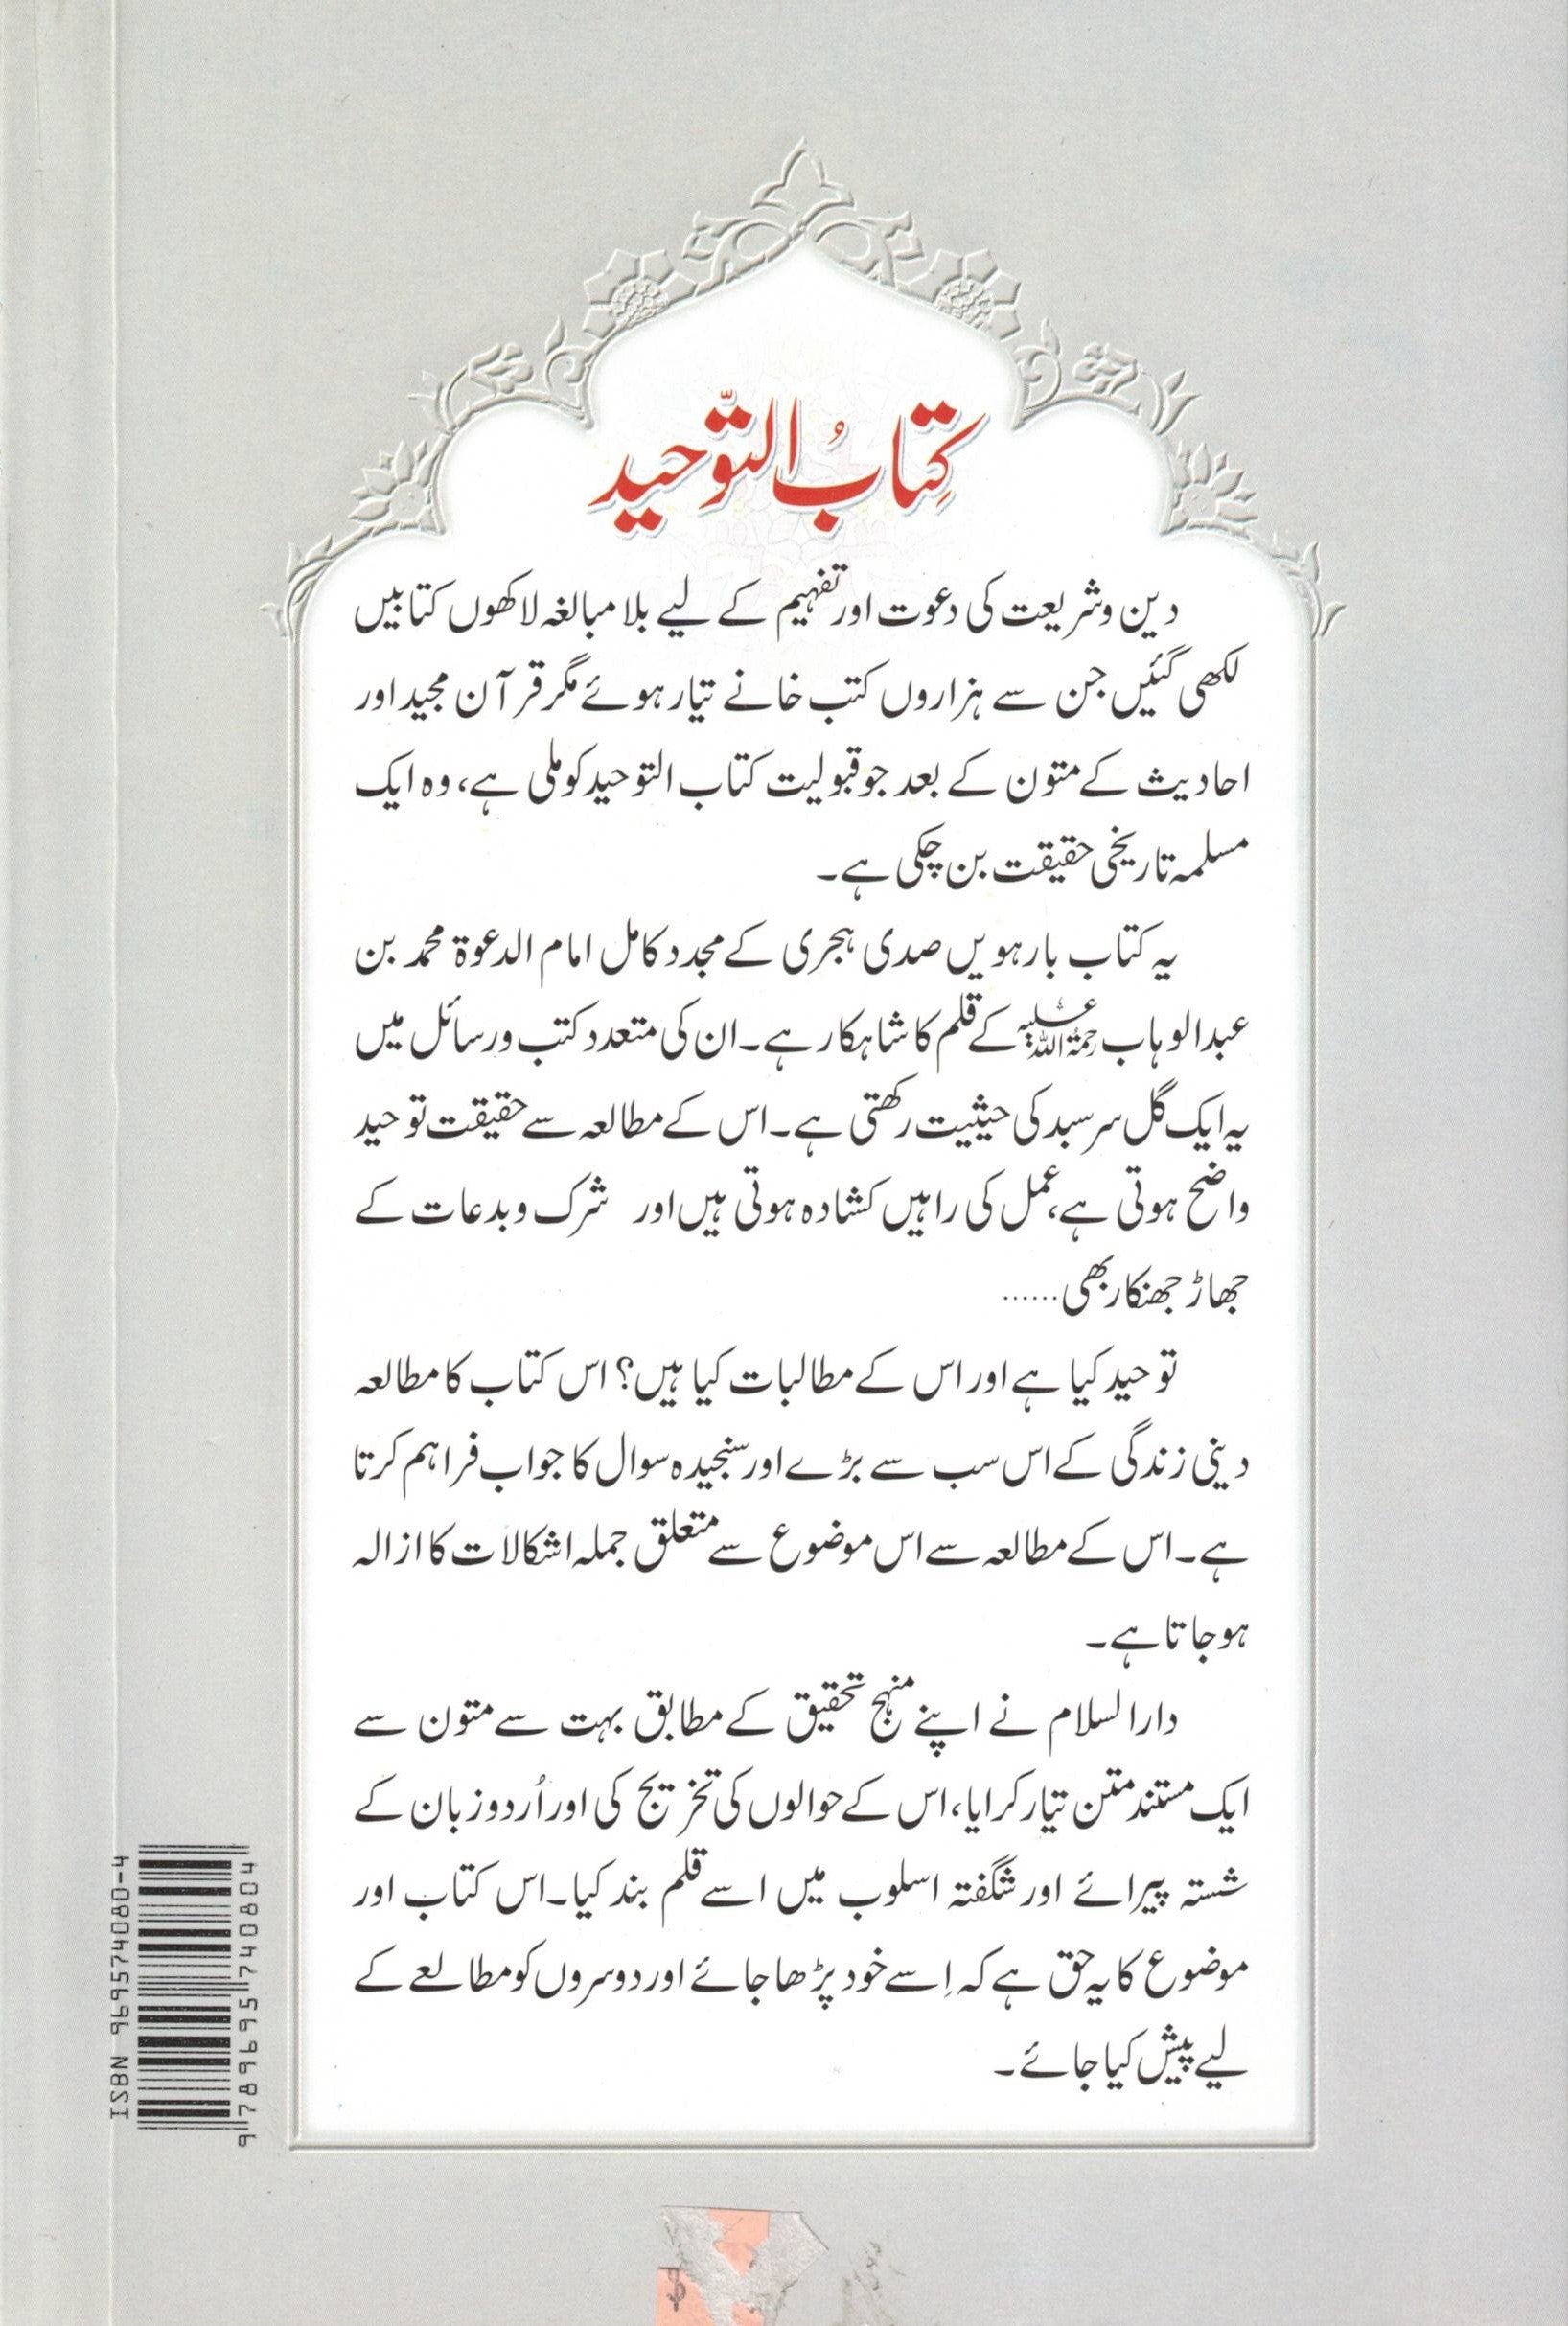 کِتابُ التّوحید
دین وشریعت کی دعوت اور تفہیم کے لیے بلا مبالغہ لاکھوں کتابیں
لکھی گئیں جن سے ہزاروں کتب خانے تیار ہوئے مگر قرآن مجید اور
احادیث کے متون کے بعد جو قبولیت کتاب التوحید کو ملی ہے، وہ ایک
مسلمہ تاریخی حقیقت بن چکی ہے۔
یہ کتاب بارہویں صدی ہجری کے مجدد کامل امام الدعوۃ محمد بن
عبدالوہاب رحمۃ اللہ علیہ کے قلم کا شاہکار ہے۔ ان کی متعدد کتب ورسائل میں
یہ ایک گل سرسبد کی حیثیت رکھتی ہے۔ اس کے مطالعہ سے حقیقت توحید
واضح ہوتی ہے، عمل کی راہیں کشادہ ہوتی ہیں اور شرک وبدعات کے
جھاڑ جھنکار بھی ......
توحید کیا ہے اور اس کے مطالبات کیا ہیں؟ اس کتاب کا مطالعہ
دینی زندگی کے اس سب سے بڑے اور سنجیدہ سوال کا جواب فراہم کرتا
ہے۔ اس کے مطالعہ سے اس موضوع سے متعلق جملہ اشکالات کا ازالہ
ہو جاتا ہے۔
دارالسلام نے اپنے منہج تحقیق کے مطابق بہت سے متون سے
ایک مستند متن تیار کرایا، اس کے حوالوں کی تخریج کی اور اُردو زبان کے
شستہ پیرائے اور شگفتہ اسلوب میں اسے قلم بند کیا۔ اس کتاب اور
موضوع کا یہ حق ہے کہ اِسے خود پڑھا جائے اور دوسروں کو مطالعے کے
لیے پیش کیا جائے۔
ISBN 969574080-4
9 789695 740804